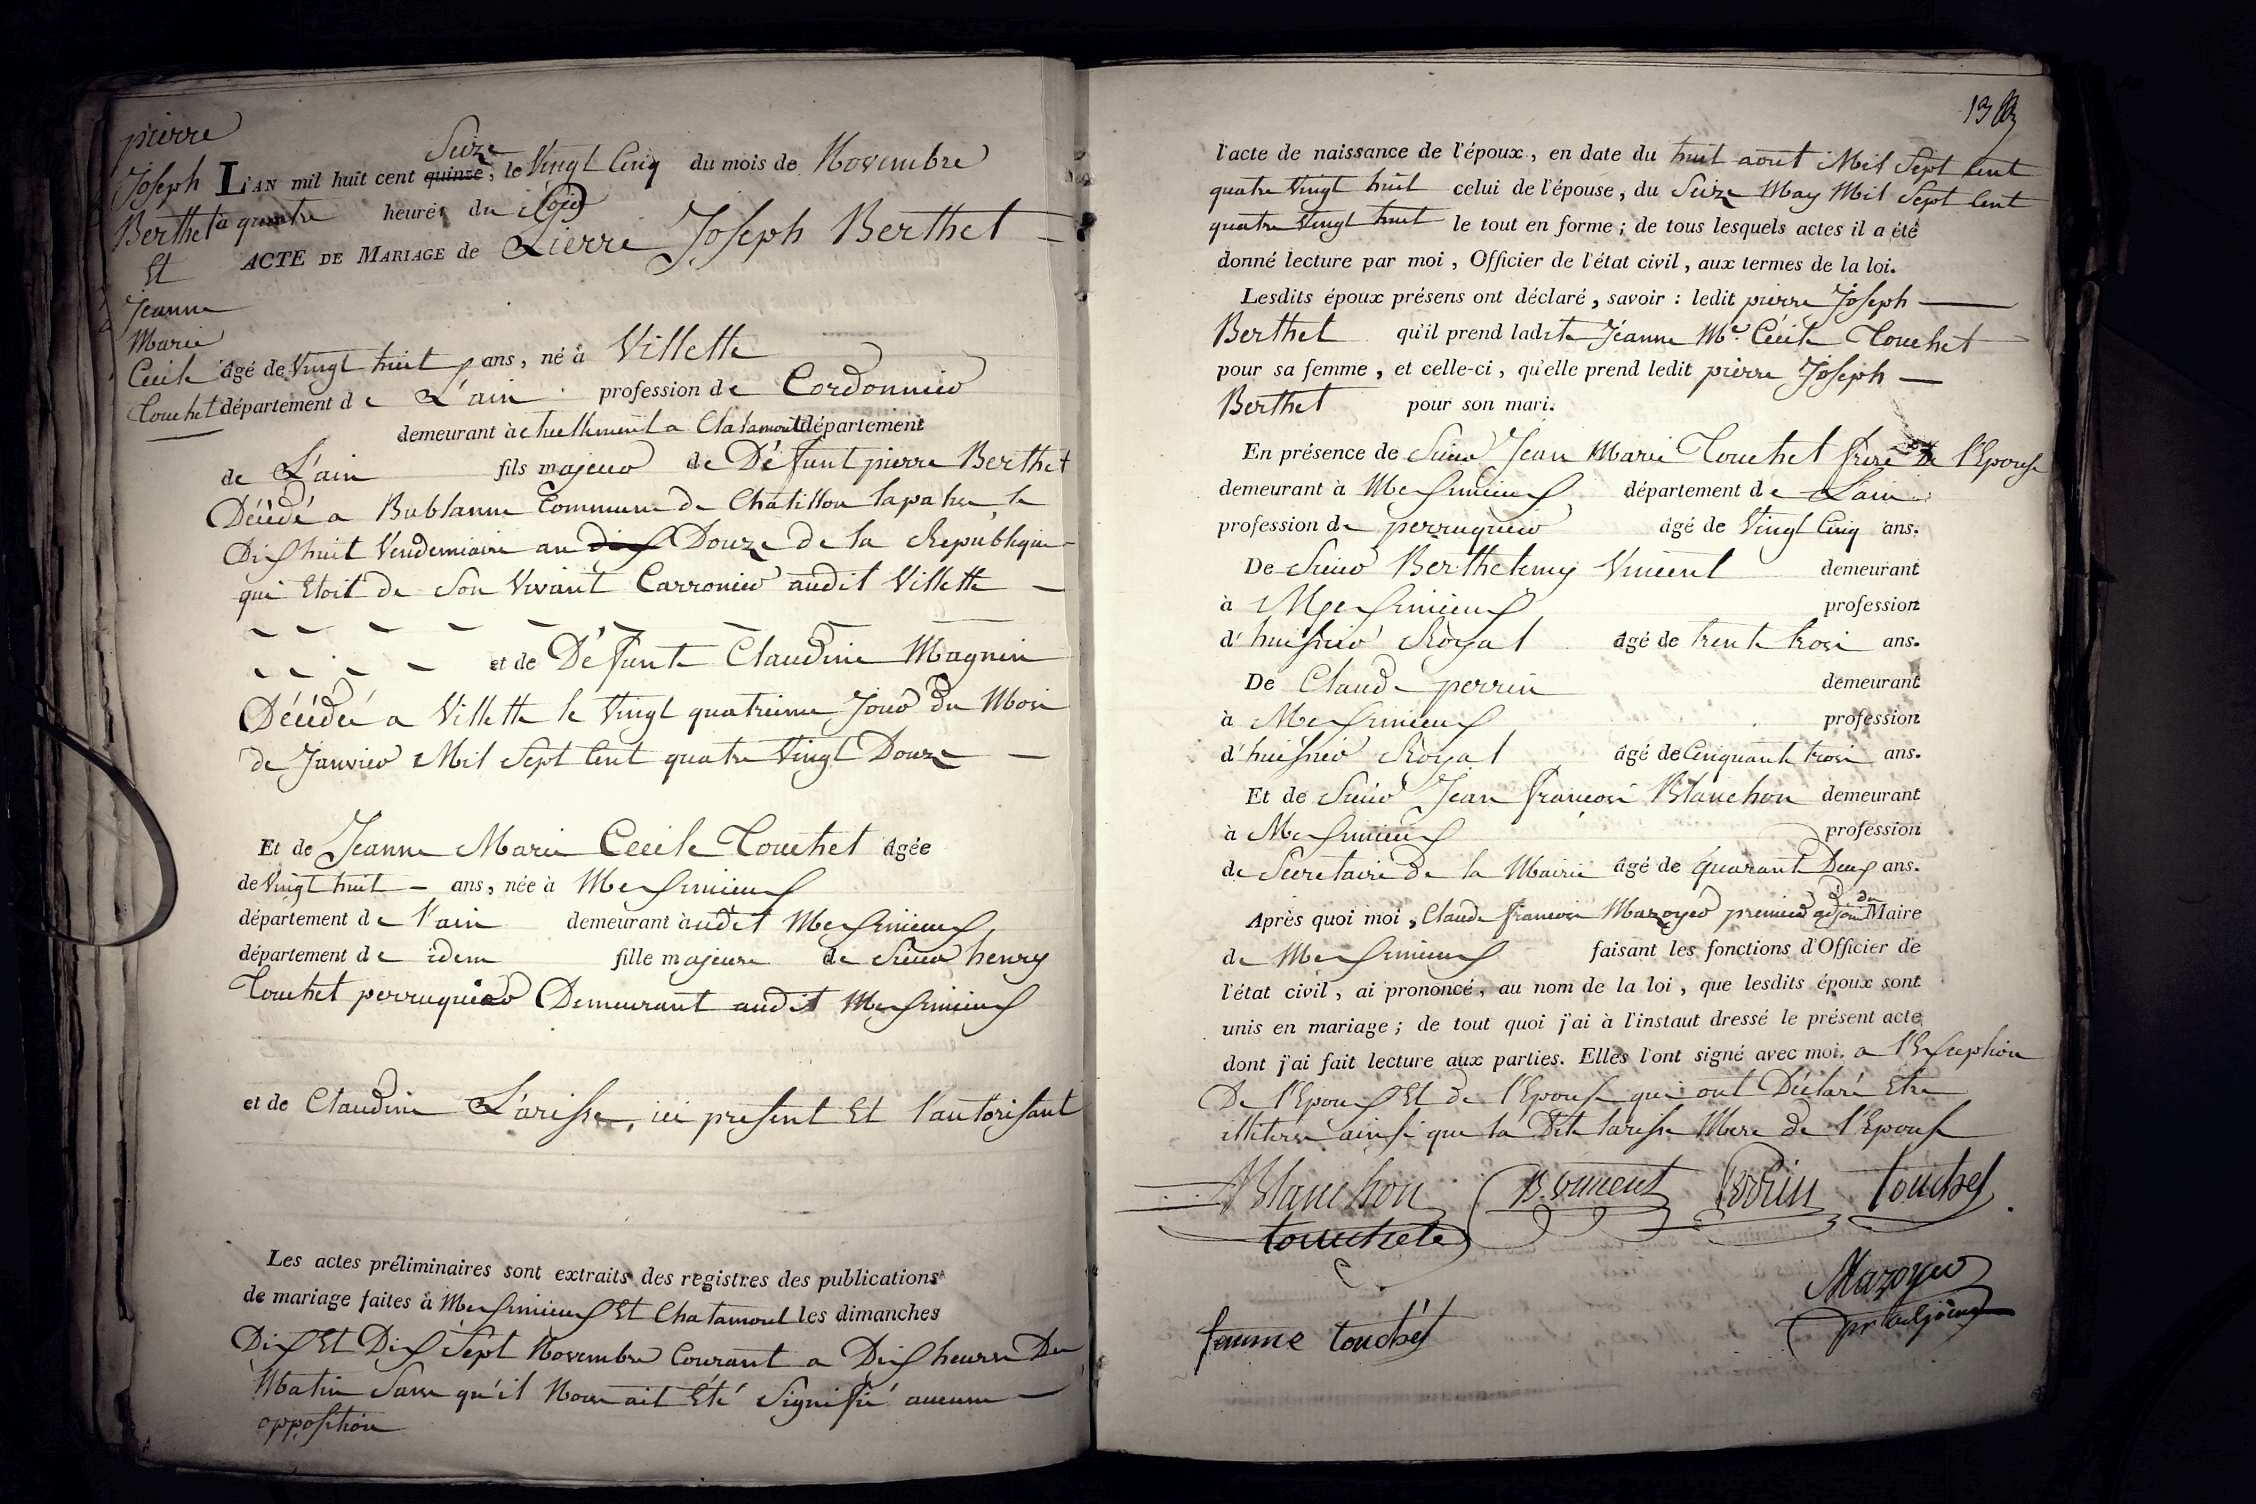 pierre
Joseph
Berthet
Et
Jeanne
Marie
Cecile
Touchet
L'AN mil huit cent quinze Seize, le Vingt Cinq du mois de Novembre
à quatre heures du Soir
ACTE DE MARIAGE de Pierre Joseph Berthet
âgé de Vingt huit ans, né à Villette
département de L'ain profession de Cordonnier
demeurant actuellement a Chalamont département
de L'ain fils majeur de Défunt pierre Berthet
Décédé a Bublanne Commune de Châtillon lapalue, le
Dix huit Vendemiaire an dix Douze de la Republique
qui Etoit de Son Vivant Carronier audit Villette
et de Défunte Claudine Magnin
Décédée a Villette le Vingt quatrieme Jour du Mois
de Janvier Mil Sept Cent quatre Vingt Douze
Et de Jeanne Marie Cecile Touchet âgée
de Vingt huit ans, née à Meximieux
département de l'ain demeurant audit Meximieux
département de idem fille majeure de Sieur henry
Touchet perruquier Demeurant audit Meximieux
et de Claudine Larisse, ici present Et l'autorisant
Les actes préliminaires sont extraits des registres des publications
de mariage faites à Meximieux Et Chalamont les dimanches
Dix Et Dix Sept Novembre Courant a Dix heures Du
Matin Sans qu'il Nous ait Été Signifié aucune
opposition
13
l'acte de naissance de l'époux, en date du huit aout Mil Sept Cent
quatre Vingt huit celui de l'épouse, du Seize May Mil Sept Cent
quatre Vingt huit le tout en forme; de tous lesquels actes il a été
donné lecture par moi, Officier de l'état civil, aux termes de la loi.
Lesdits époux présens ont déclaré, savoir: ledit pierre Joseph
Berthet qu'il prend ladite Jéanne Me. Cécile Touchet
pour sa femme, et celle-ci, qu'elle prend ledit pierre Joseph
Berthet pour son mari.
En présence de Sieur Jean Marie Touchet frere de l'Epouse
demeurant à Meximieux département de L'ain
profession de perruquier âgé de Vingt Cinq ans.
De Sieur Berthelemy Vincent demeurant
à Meximieux profession
d'huissier Royal âgé de trente trois ans.
De Claude perrin demeurant
à Meximieux profession
d'huissier Royal âgé de Cinquante trois ans.
Et de Sieur Jean françois Blanchon demeurant
à Meximieux profession
de Secretaire de la Mairie âgé de quarant Deux ans.
Après quoi moi, Claude francois Mazoyer premier adjoint du Maire
de Meximieux faisant les fonctions d'Officier de
l'état civil, ai prononcé, au nom de la loi, que lesdits époux sont
unis en mariage; de tout quoi j'ai à l'instaut dressé le présent acte
dont j'ai fait lecture aux parties. Elles l'ont signé avec moi. a l'Exception
De l'Epoux Et de l'Epouse qui ont Déclaré Etre
illiterés ainsi que la Dite larisse Mere de l'Epouse
Blanchon B. vincent Perrin touchet
touchete
Mazoyer
pr adjoint
femme touchet